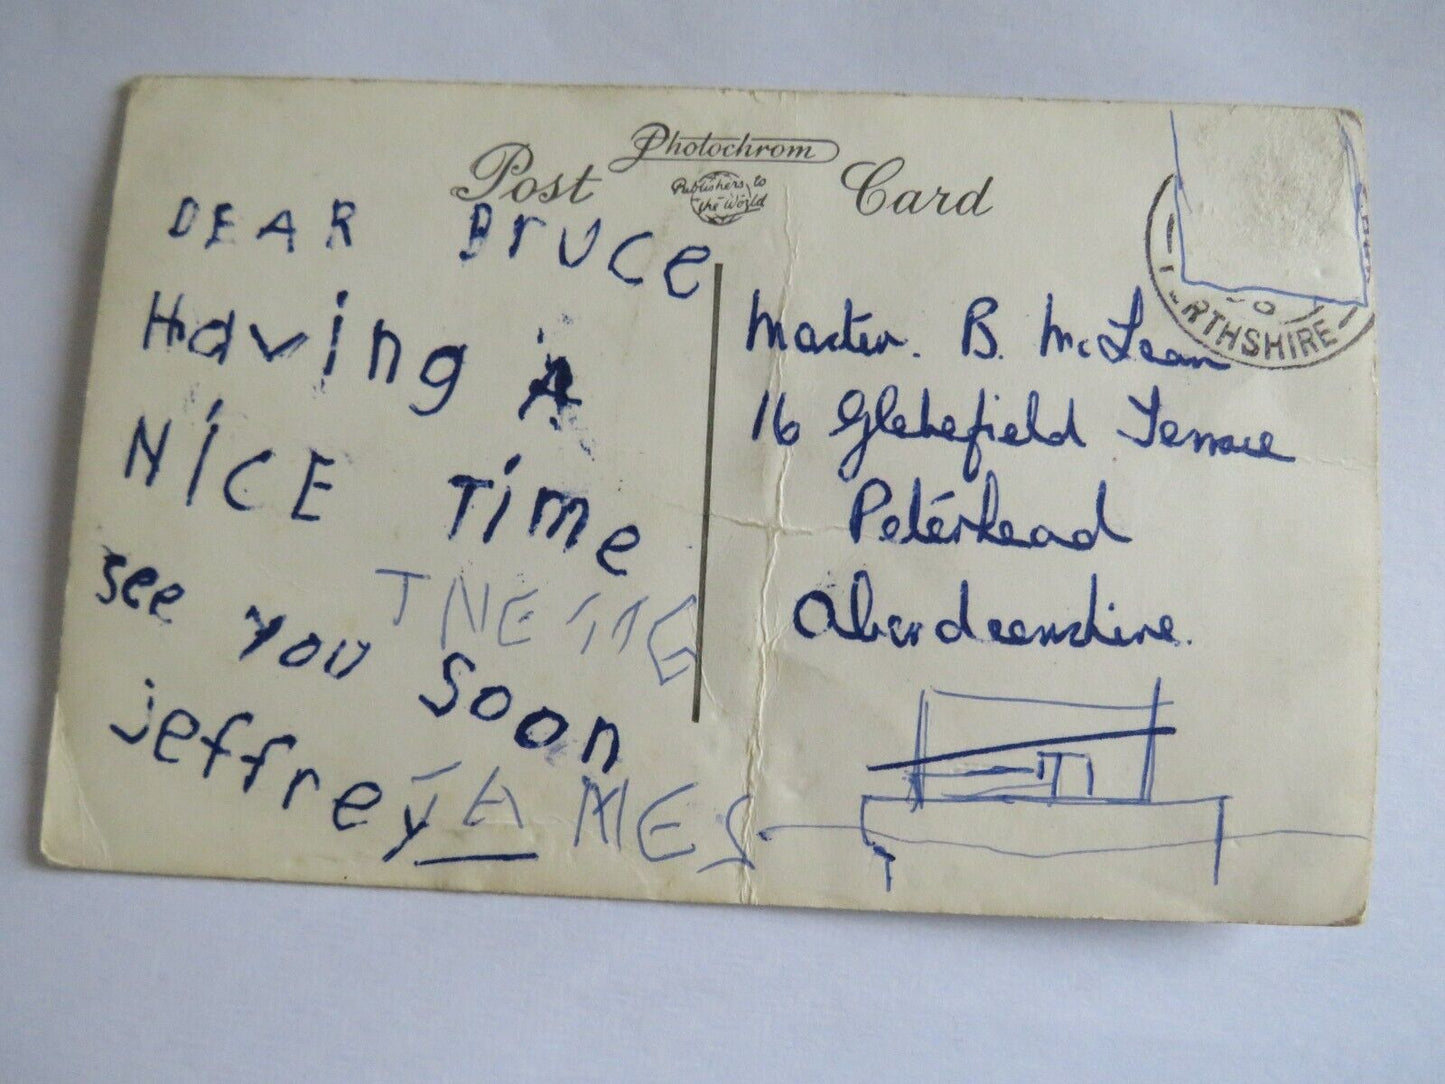 Photochrom
Post Card
Publishers to
the World
DEAR Bruce
Having A
NICE Time
see you soon
jeffrey
JAMES
Master. B. McLean
16 Glebefield Terrace
Peterhead
Aberdeenshire.
RTHSHIRE